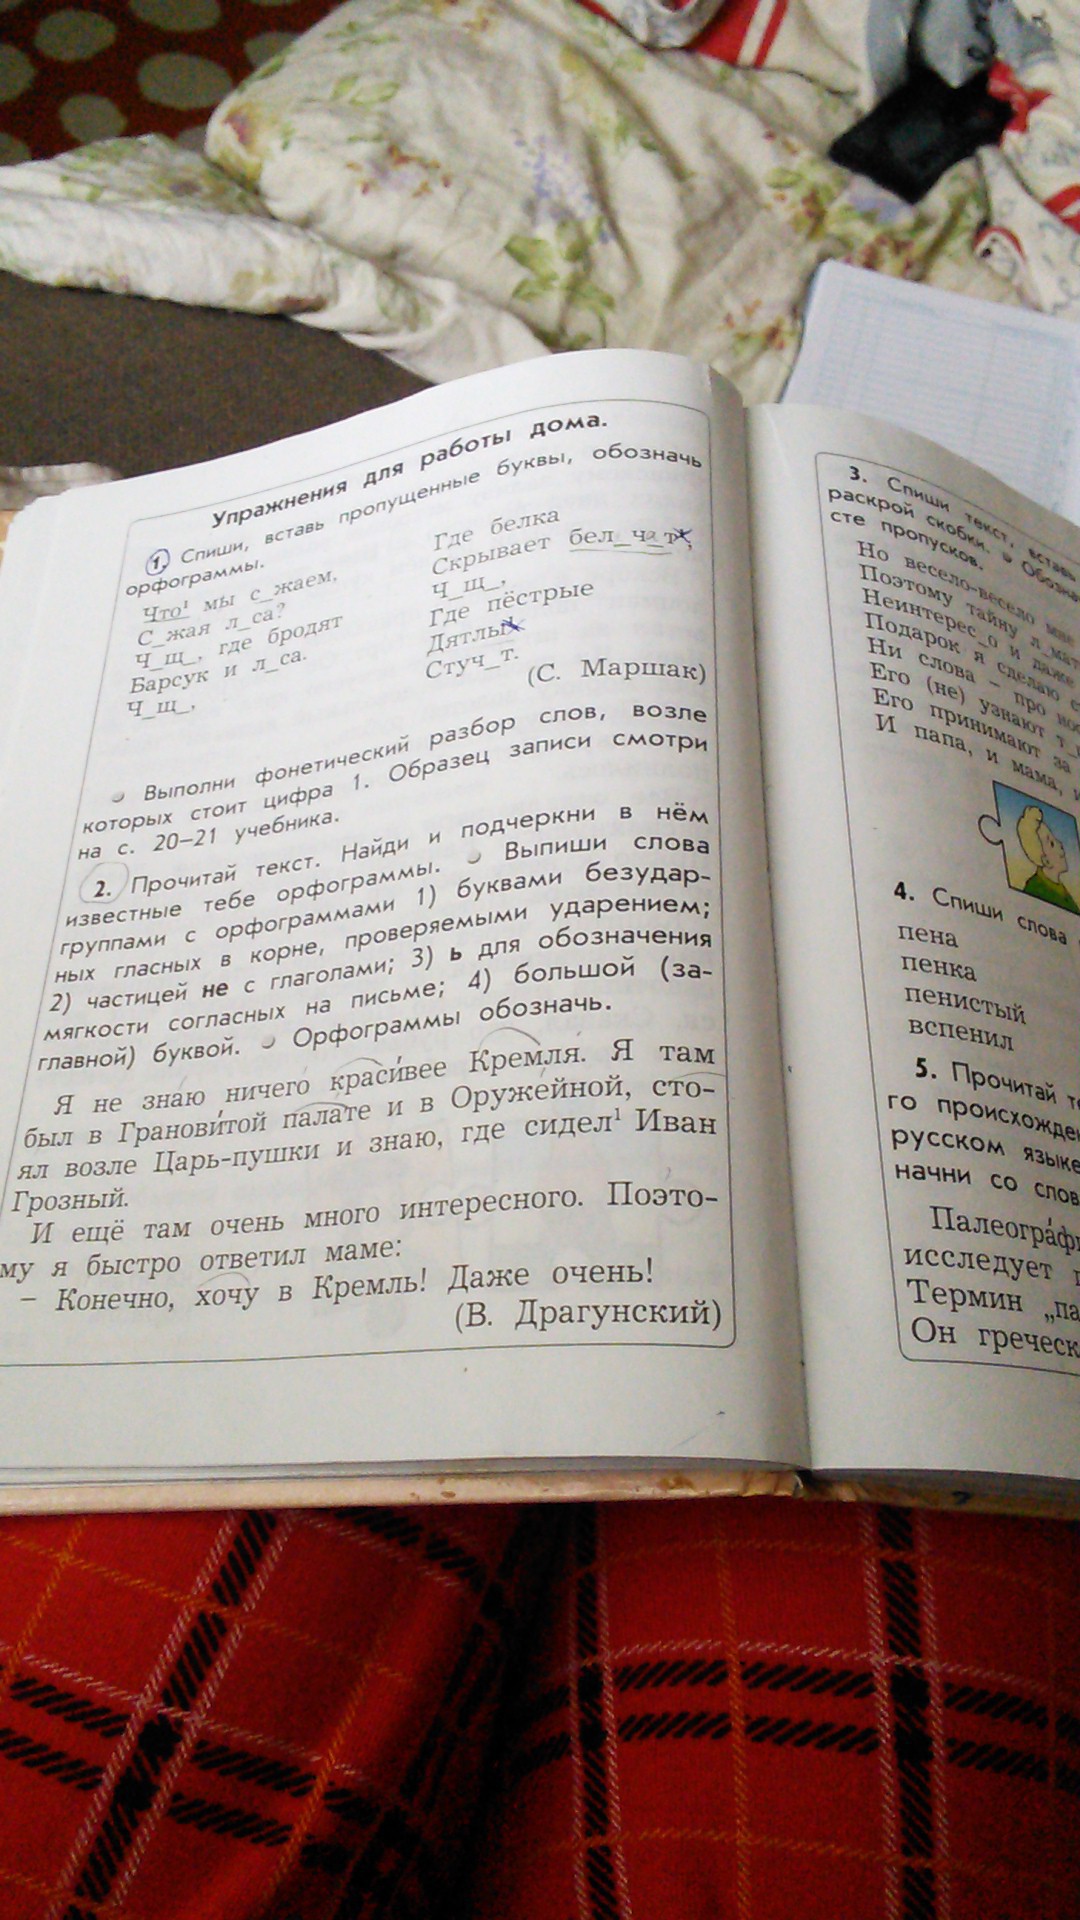 Упражнения для работы дома.
1. Спиши, вставь пропущенные буквы, обозначь
орфограммы.
Что¹ мы с_жаем,
С_жая л_са?
Ч_щ_, где бродят
Барсук и л_са.
Ч_щ_,
Где белка
Скрывает бел_ч_т,
Ч_щ_,
Где пёстрые
Дятлы
Стуч_т.
(С. Маршак)
Выполни фонетический разбор слов, возле
которых стоит цифра 1. Образец записи смотри
на с. 20–21 учебника.
2. Прочитай текст. Найди и подчеркни в нём
известные тебе орфограммы. Выпиши слова
группами с орфограммами 1) буквами безудар-
ных гласных в корне, проверяемыми ударением;
2) частицей не с глаголами; 3) ь для обозначения
мягкости согласных на письме; 4) большой (за-
главной) буквой. Орфограммы обозначь.
Я не знаю ничего красивее Кремля. Я там
был в Грановитой палате и в Оружейной, сто-
ял возле Царь-пушки и знаю, где сидел¹ Иван
Грозный.
И ещё там очень много интересного. Поэто-
му я быстро ответил маме:
– Конечно, хочу в Кремль! Даже очень!
(В. Драгунский)
3. Спиши текст, вставь
раскрой скобки. Обозна
сте пропусков.
Но весело-весело мне
Поэтому тайну л_мат
Неинтерес_о и даже
Подарок я сделаю
Ни слова – про
Его (не) узнают
Его принимают за
И папа, и мама,
4. Спиши слова
пена
пенка
пенистый
вспенил
5. Прочитай
го происхожде
русском языке
начни со слов
Палеогра́ф
исследует
Термин „па
Он греческ